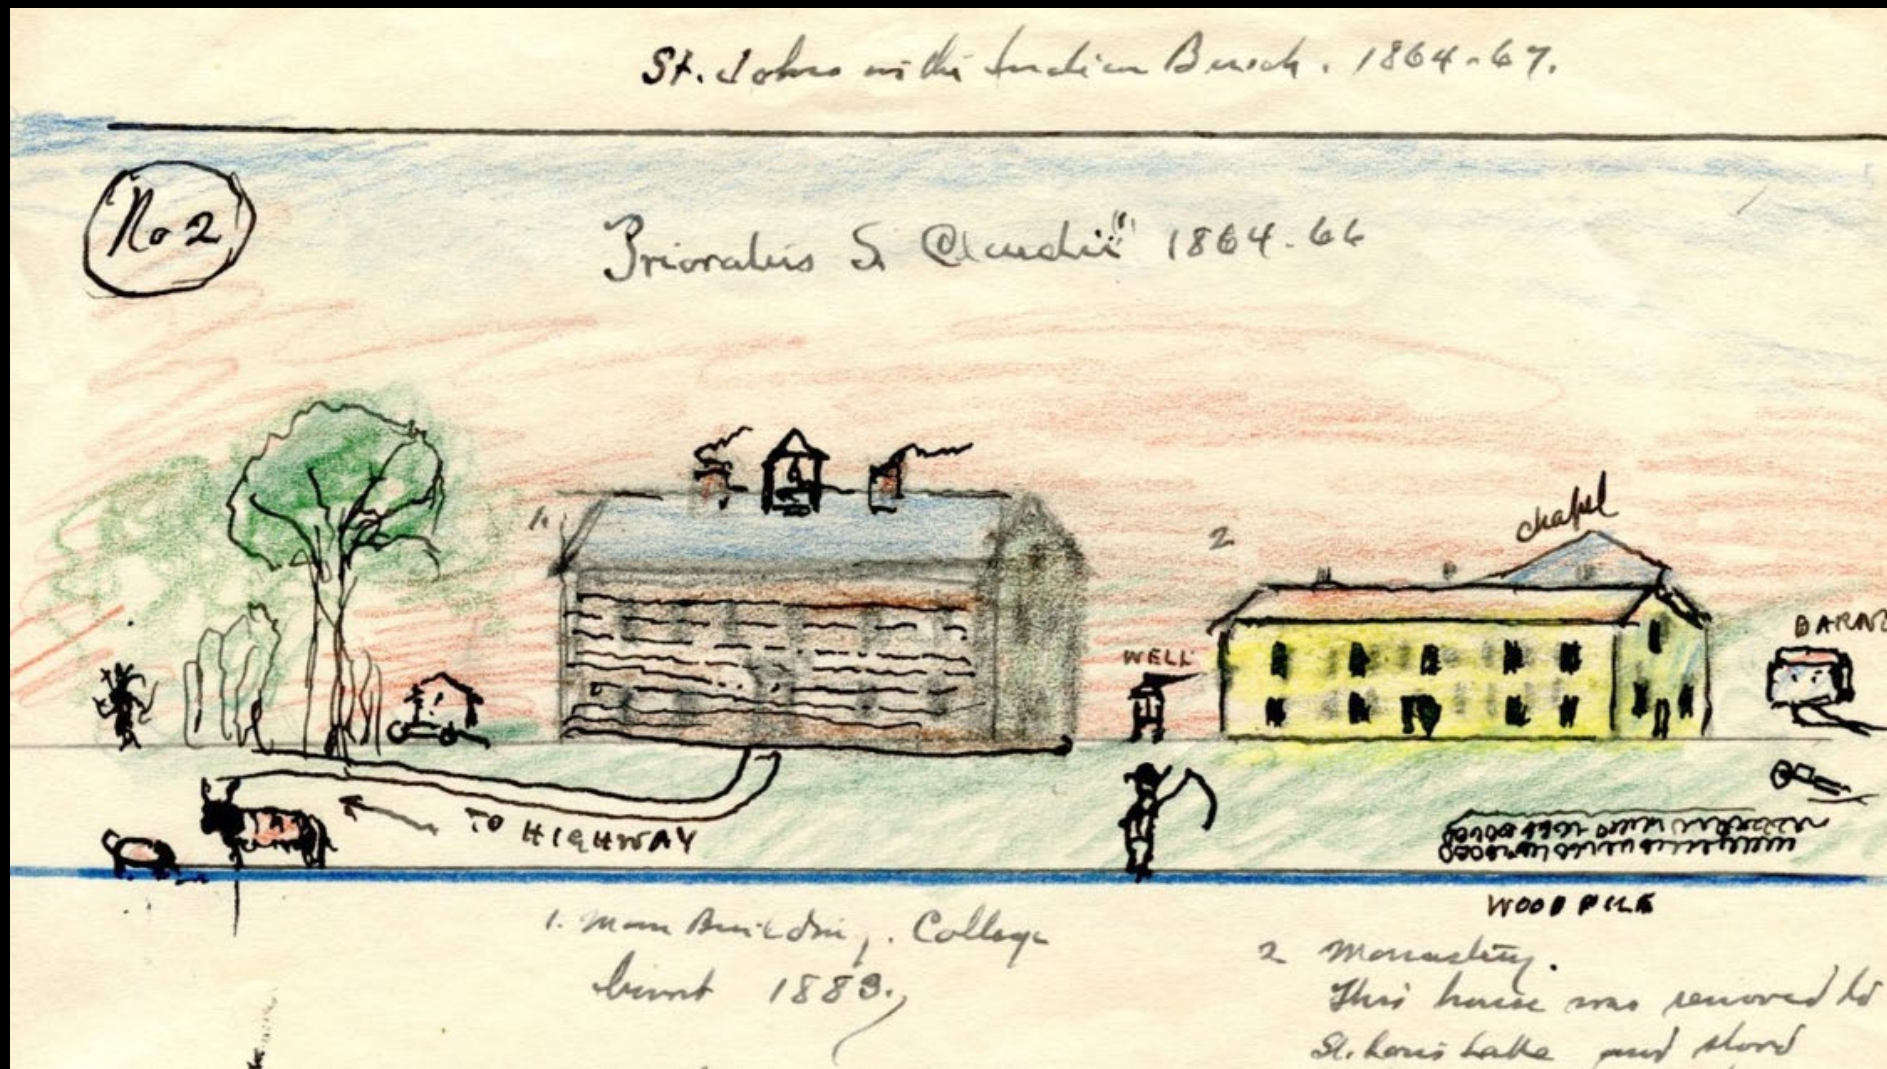 St. Johns in the Indian Bush. 1864-67.
No 2
Prioratus S. Claudii 1864-66
chapel
1.
2
BARN
WELL
TO HIGHWAY
WOOD PILE
1. Main Building. College
burnt 1883.
2 Monastery.
This house was removed to
St. Louis Lake and stood